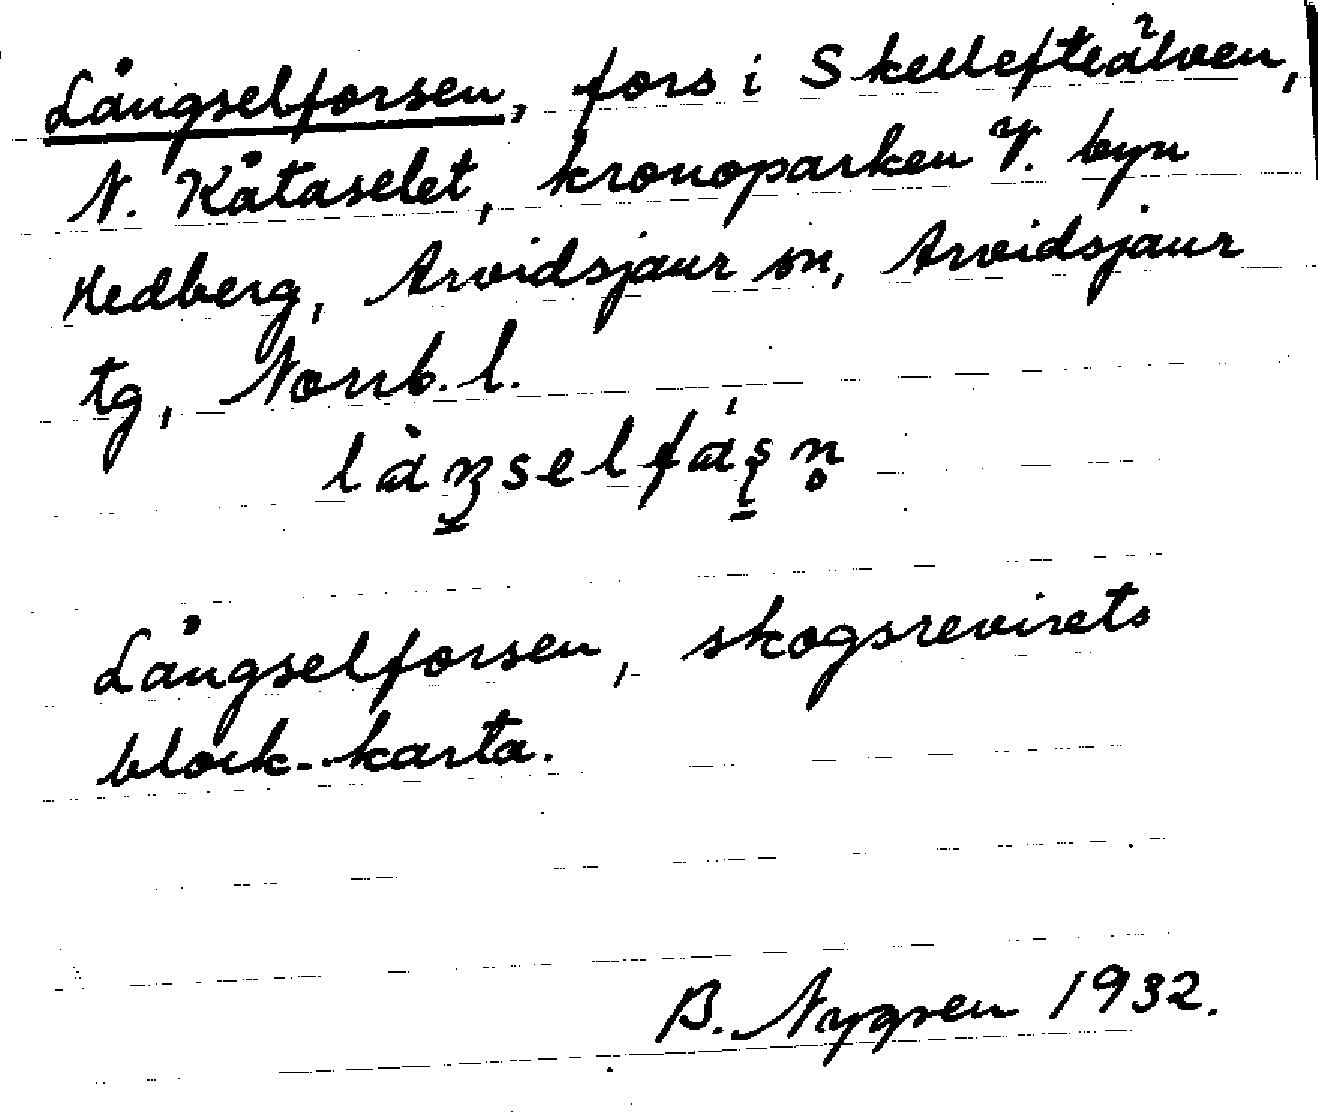 Långselforsen, fors i Skellefteälven,
N. Kåtaselet, kronoparken V. byn
Hedberg, Arvidsjaur sn, Arvidsjaur
tg, Norrb. l.
Långselforsen, skogsrevirets
block-karta.
B. Nygren 1932.